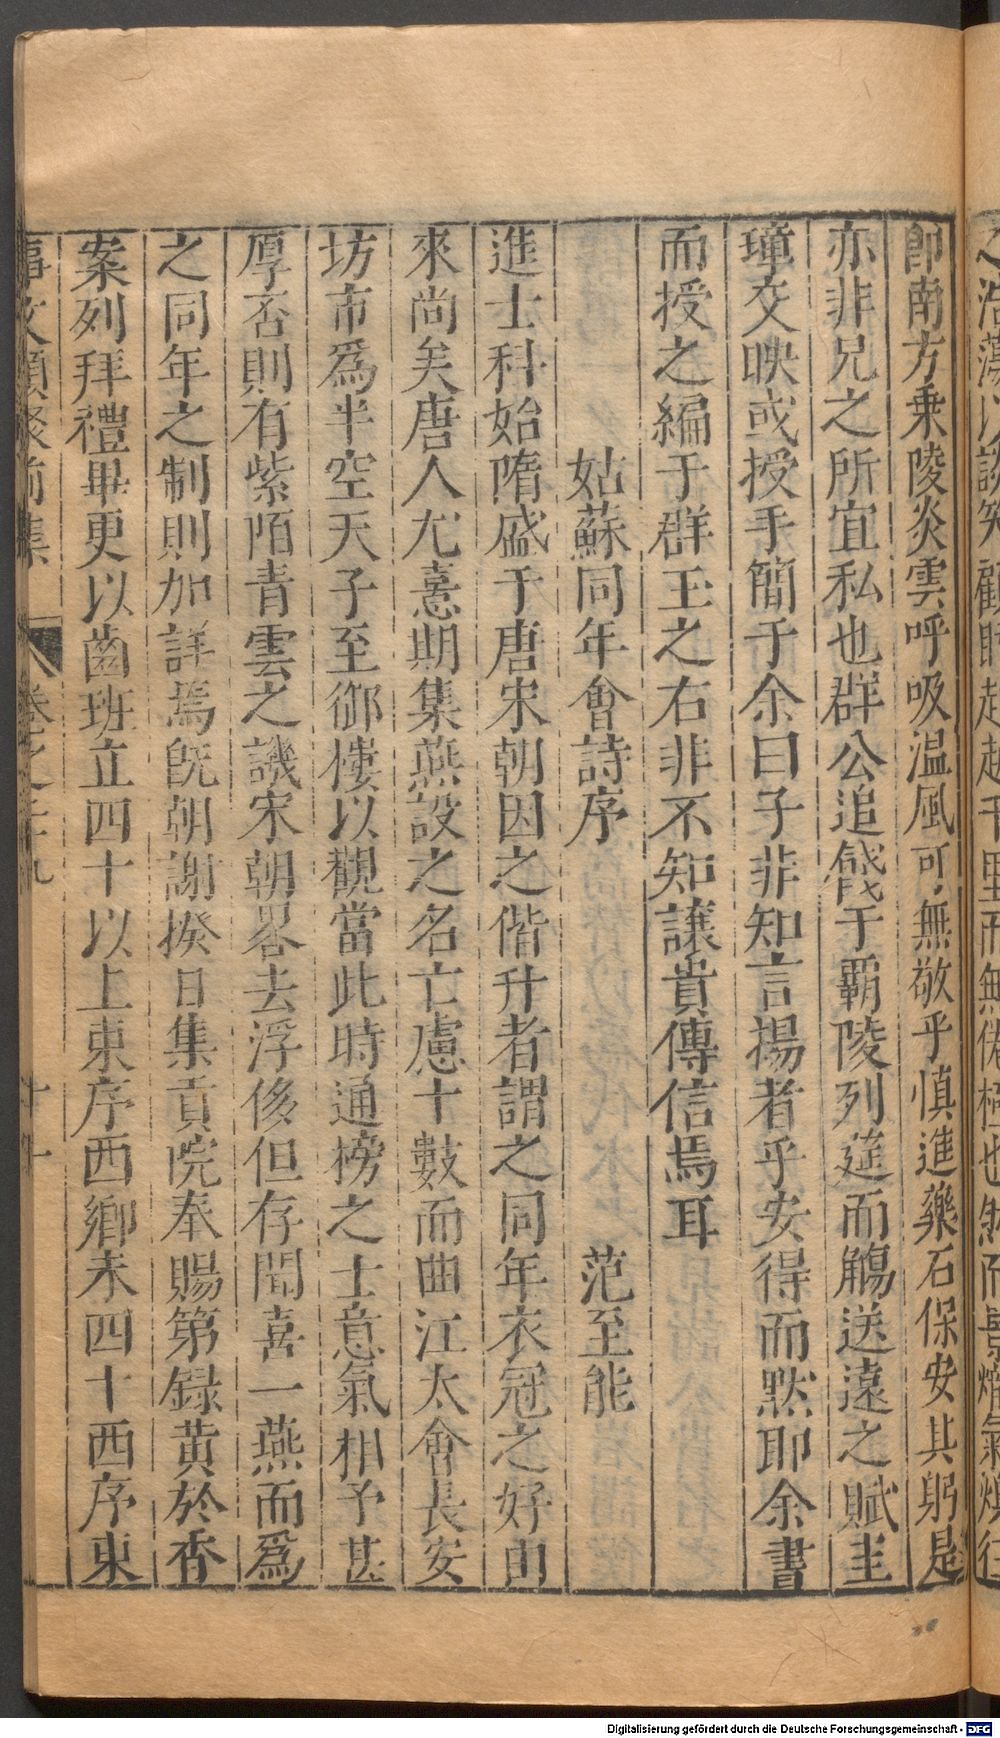 即南方乗陵炎雲呼吸温風可無敬乎慎進藥石保安其躬是
亦非兄之所宜私也群公追餞于覇陵列莚而觴送遠之賦圭
璋交映或授手簡于余曰子非知言揚者乎安得而黙耶余書
而授之編于群玉之右非不知讓貴傳信焉耳
姑蘇同年會詩序 范至能
進士科始隋盛于唐宋朝因之偕升者謂之同年衣冠之好由
來尚矣唐人尤憙期集燕設之名亡慮十數而曲江太會長安
坊市爲半空天子至御樓以觀當此時通榜之士意氣相予甚
厚否則有紫陌青雲之譏宋朝畧去浮侈但存聞喜一燕而爲
之同年之制則加詳焉旣朝謝揆日集貢院奉賜第録黄於香
案列拜禮畢更以齒班立四十以上東序西鄉未四十西序東
事文類聚前集 卷之二十九 十一
Digitalisierung gefördert durch die Deutsche Forschungsgemeinschaft - DFG